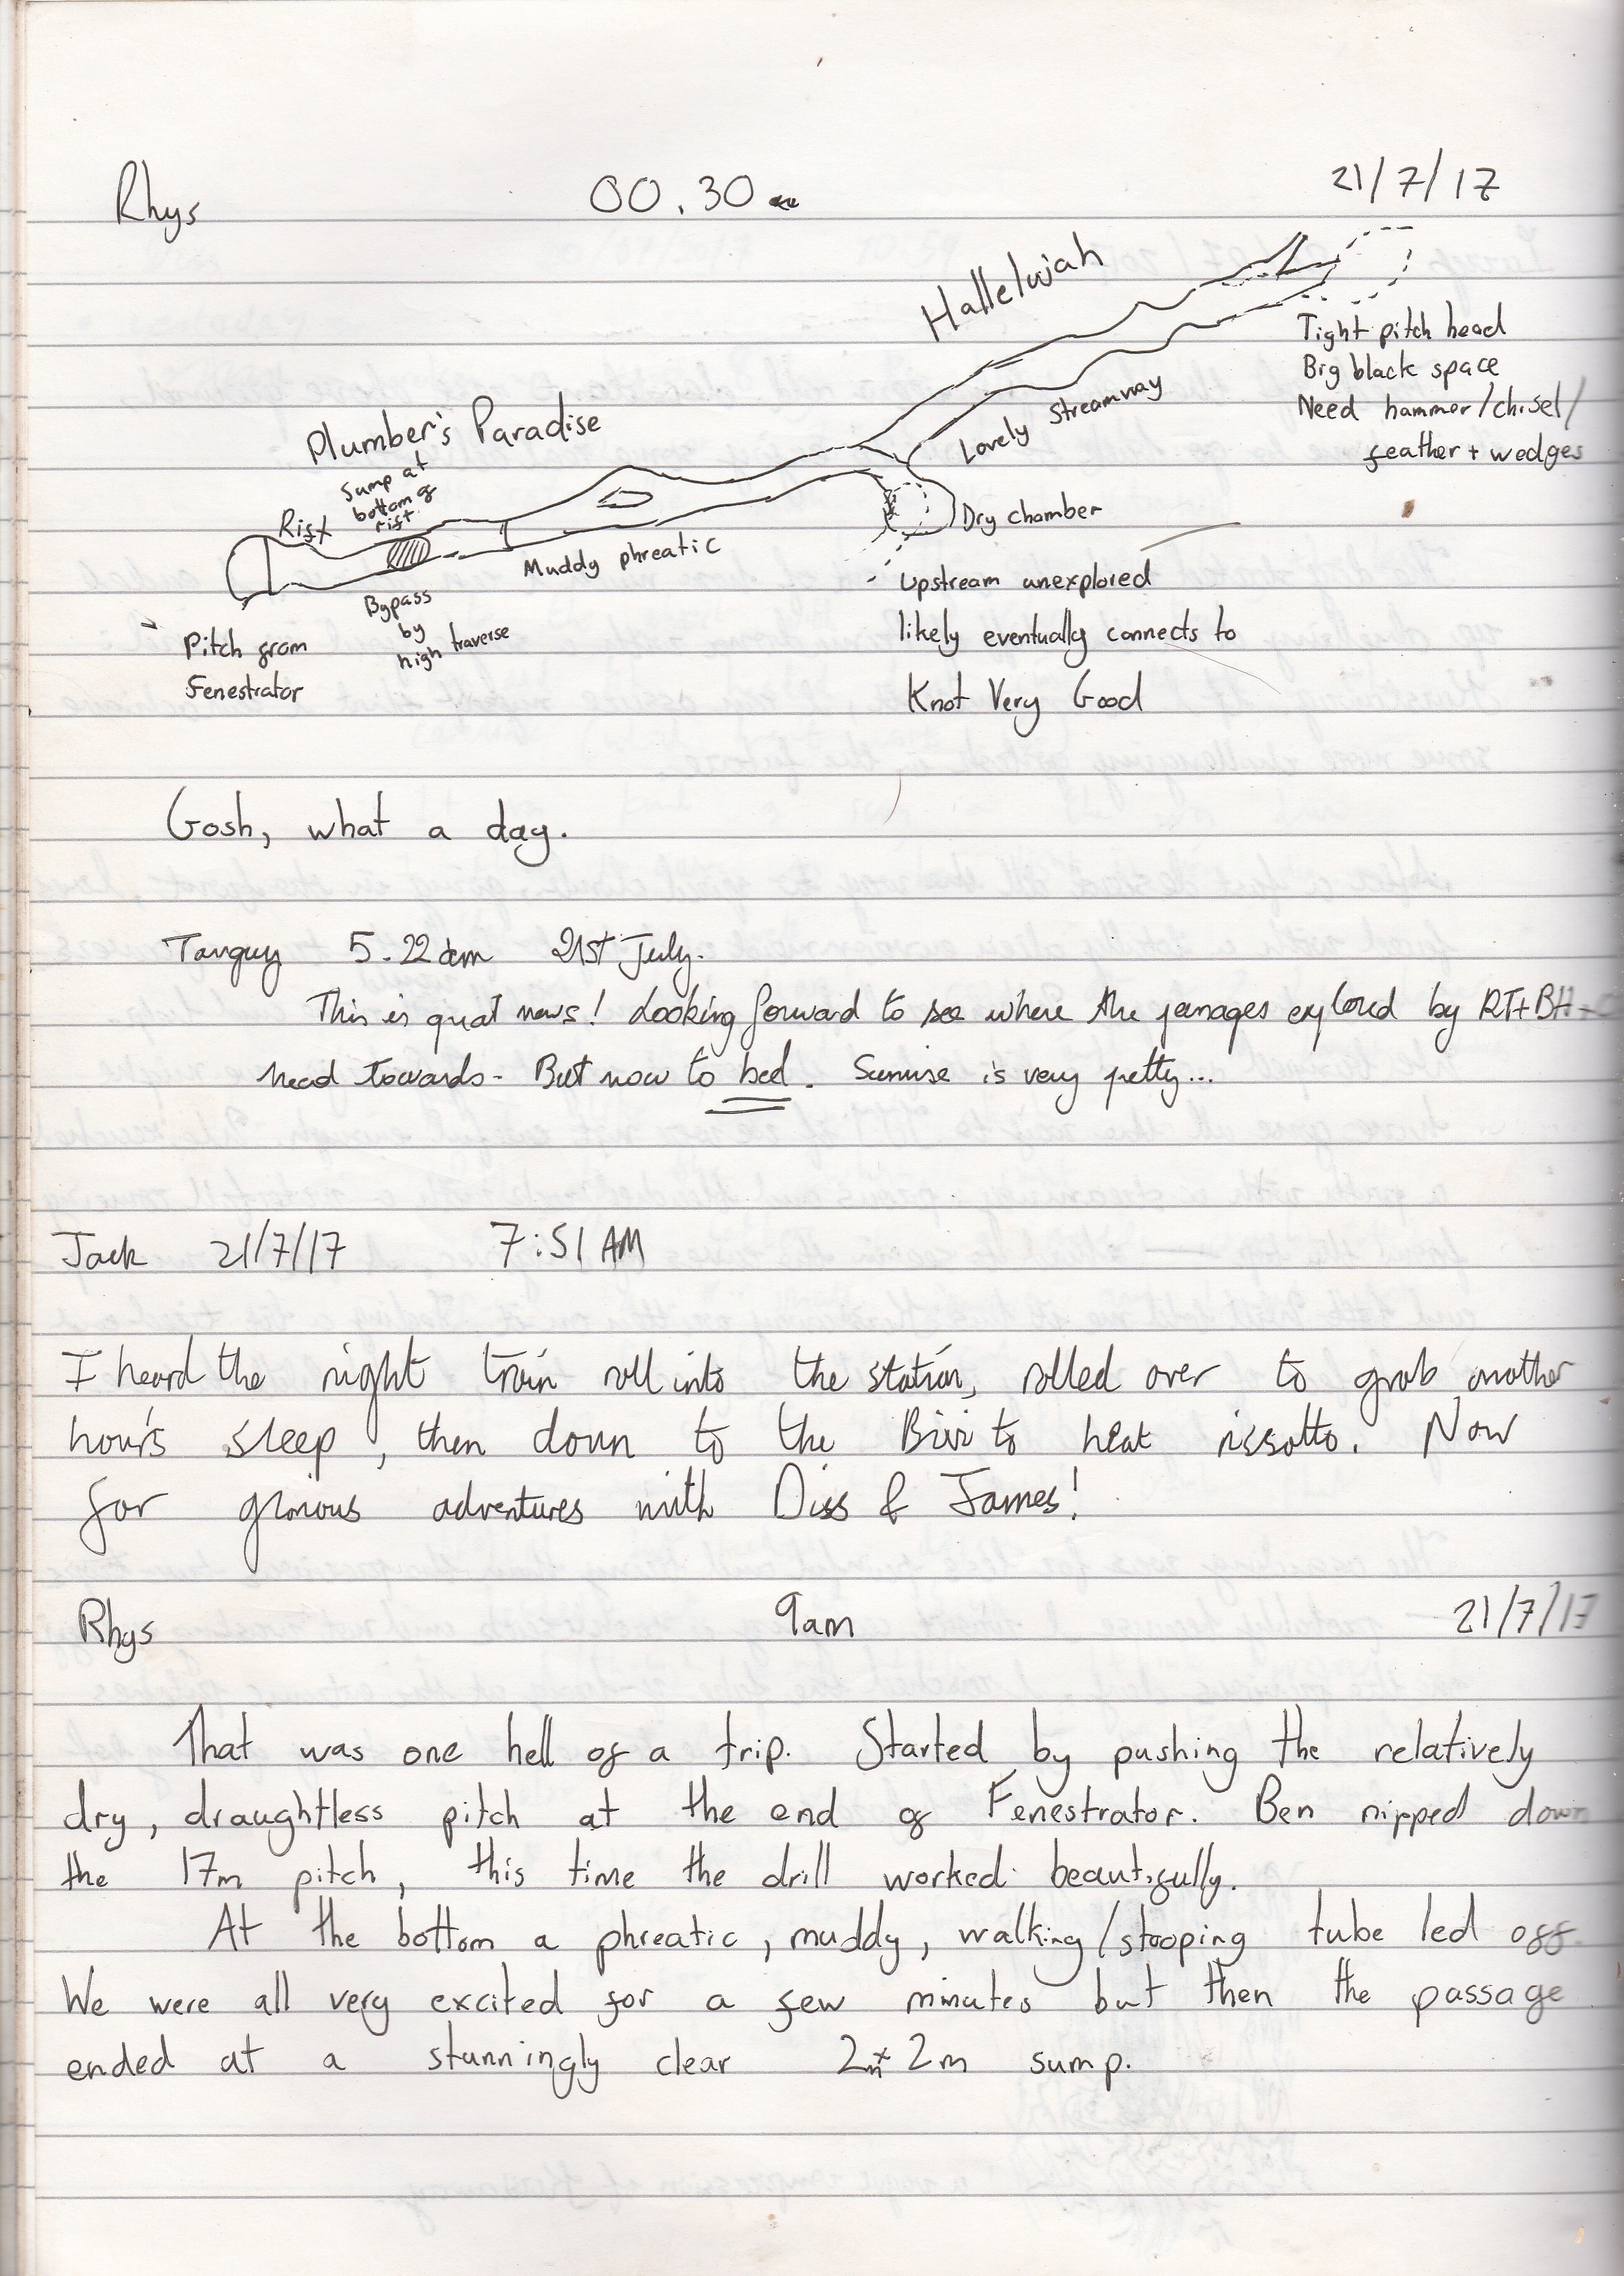 Rhys 00.30 21/7/17
Hallelujah
Tight pitch head
Big black space
Need hammer/chisel/
feather + wedges
Lovely Streamway
Plumber's Paradise
Sump at
bottom of
rift
Rift
Dry chamber
Muddy phreatic
Bypass
by
high traverse
Pitch from
Fenestrator
Upstream unexplored
likely eventually connects to
Knot Very Good
Gosh, what a day.
Tanguy 5.22am 21st July.
This is great news! Looking forward to see where the passages explored by RT+BH
head towards. But now to bed. Sunrise is very pretty...
Jack 21/7/17 7:51 AM
I heard the night train roll into the station, rolled over to grab another
hour's sleep, then down to the Bivi to heat rissotto. Now
for glorious adventures with Diss & James!
Rhys 9am 21/7/17
That was one hell of a trip. Started by pushing the relatively
dry, draughtless pitch at the end of Fenestrator. Ben nipped down
the 17m pitch, this time the drill worked beautifully.
At the bottom a phreatic, muddy, walking/stooping tube led off.
We were all very excited for a few minutes but then the passage
ended at a stunningly clear 2m x 2m sump.